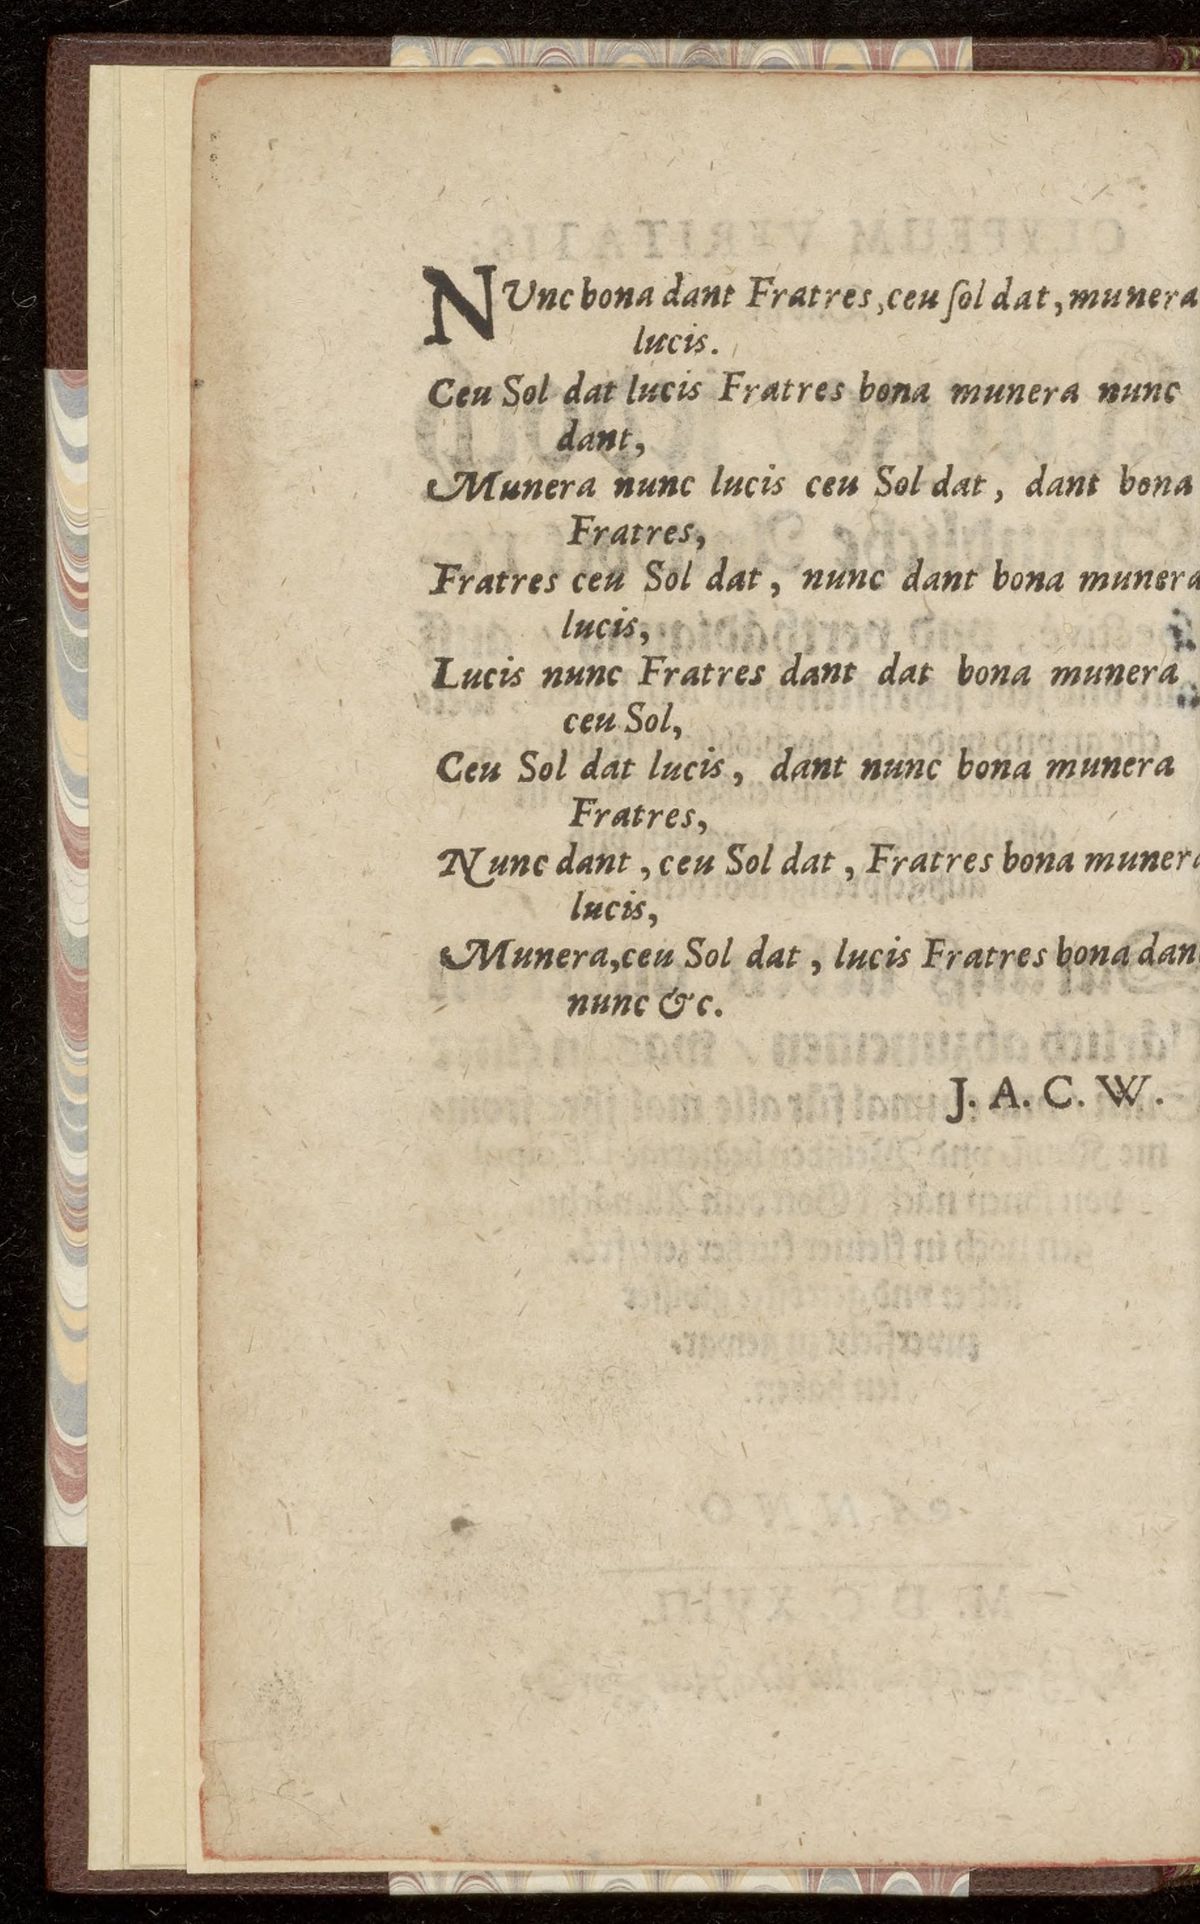 NUnc bona dant Fratres, ceu ſol dat, munera
lucis.
Ceu Sol dat lucis Fratres bona munera nunc
dant,
Munera nunc lucis ceu Sol dat, dant bona
Fratres,
Fratres ceu Sol dat, nunc dant bona munera
lucis,
Lucis nunc Fratres dant dat bona munera
ceu Sol,
Ceu Sol dat lucis, dant nunc bona munera
Fratres,
Nunc dant, ceu Sol dat, Fratres bona munera
lucis,
Munera, ceu Sol dat, lucis Fratres bona dan
nunc &c.
J. A. C. W.